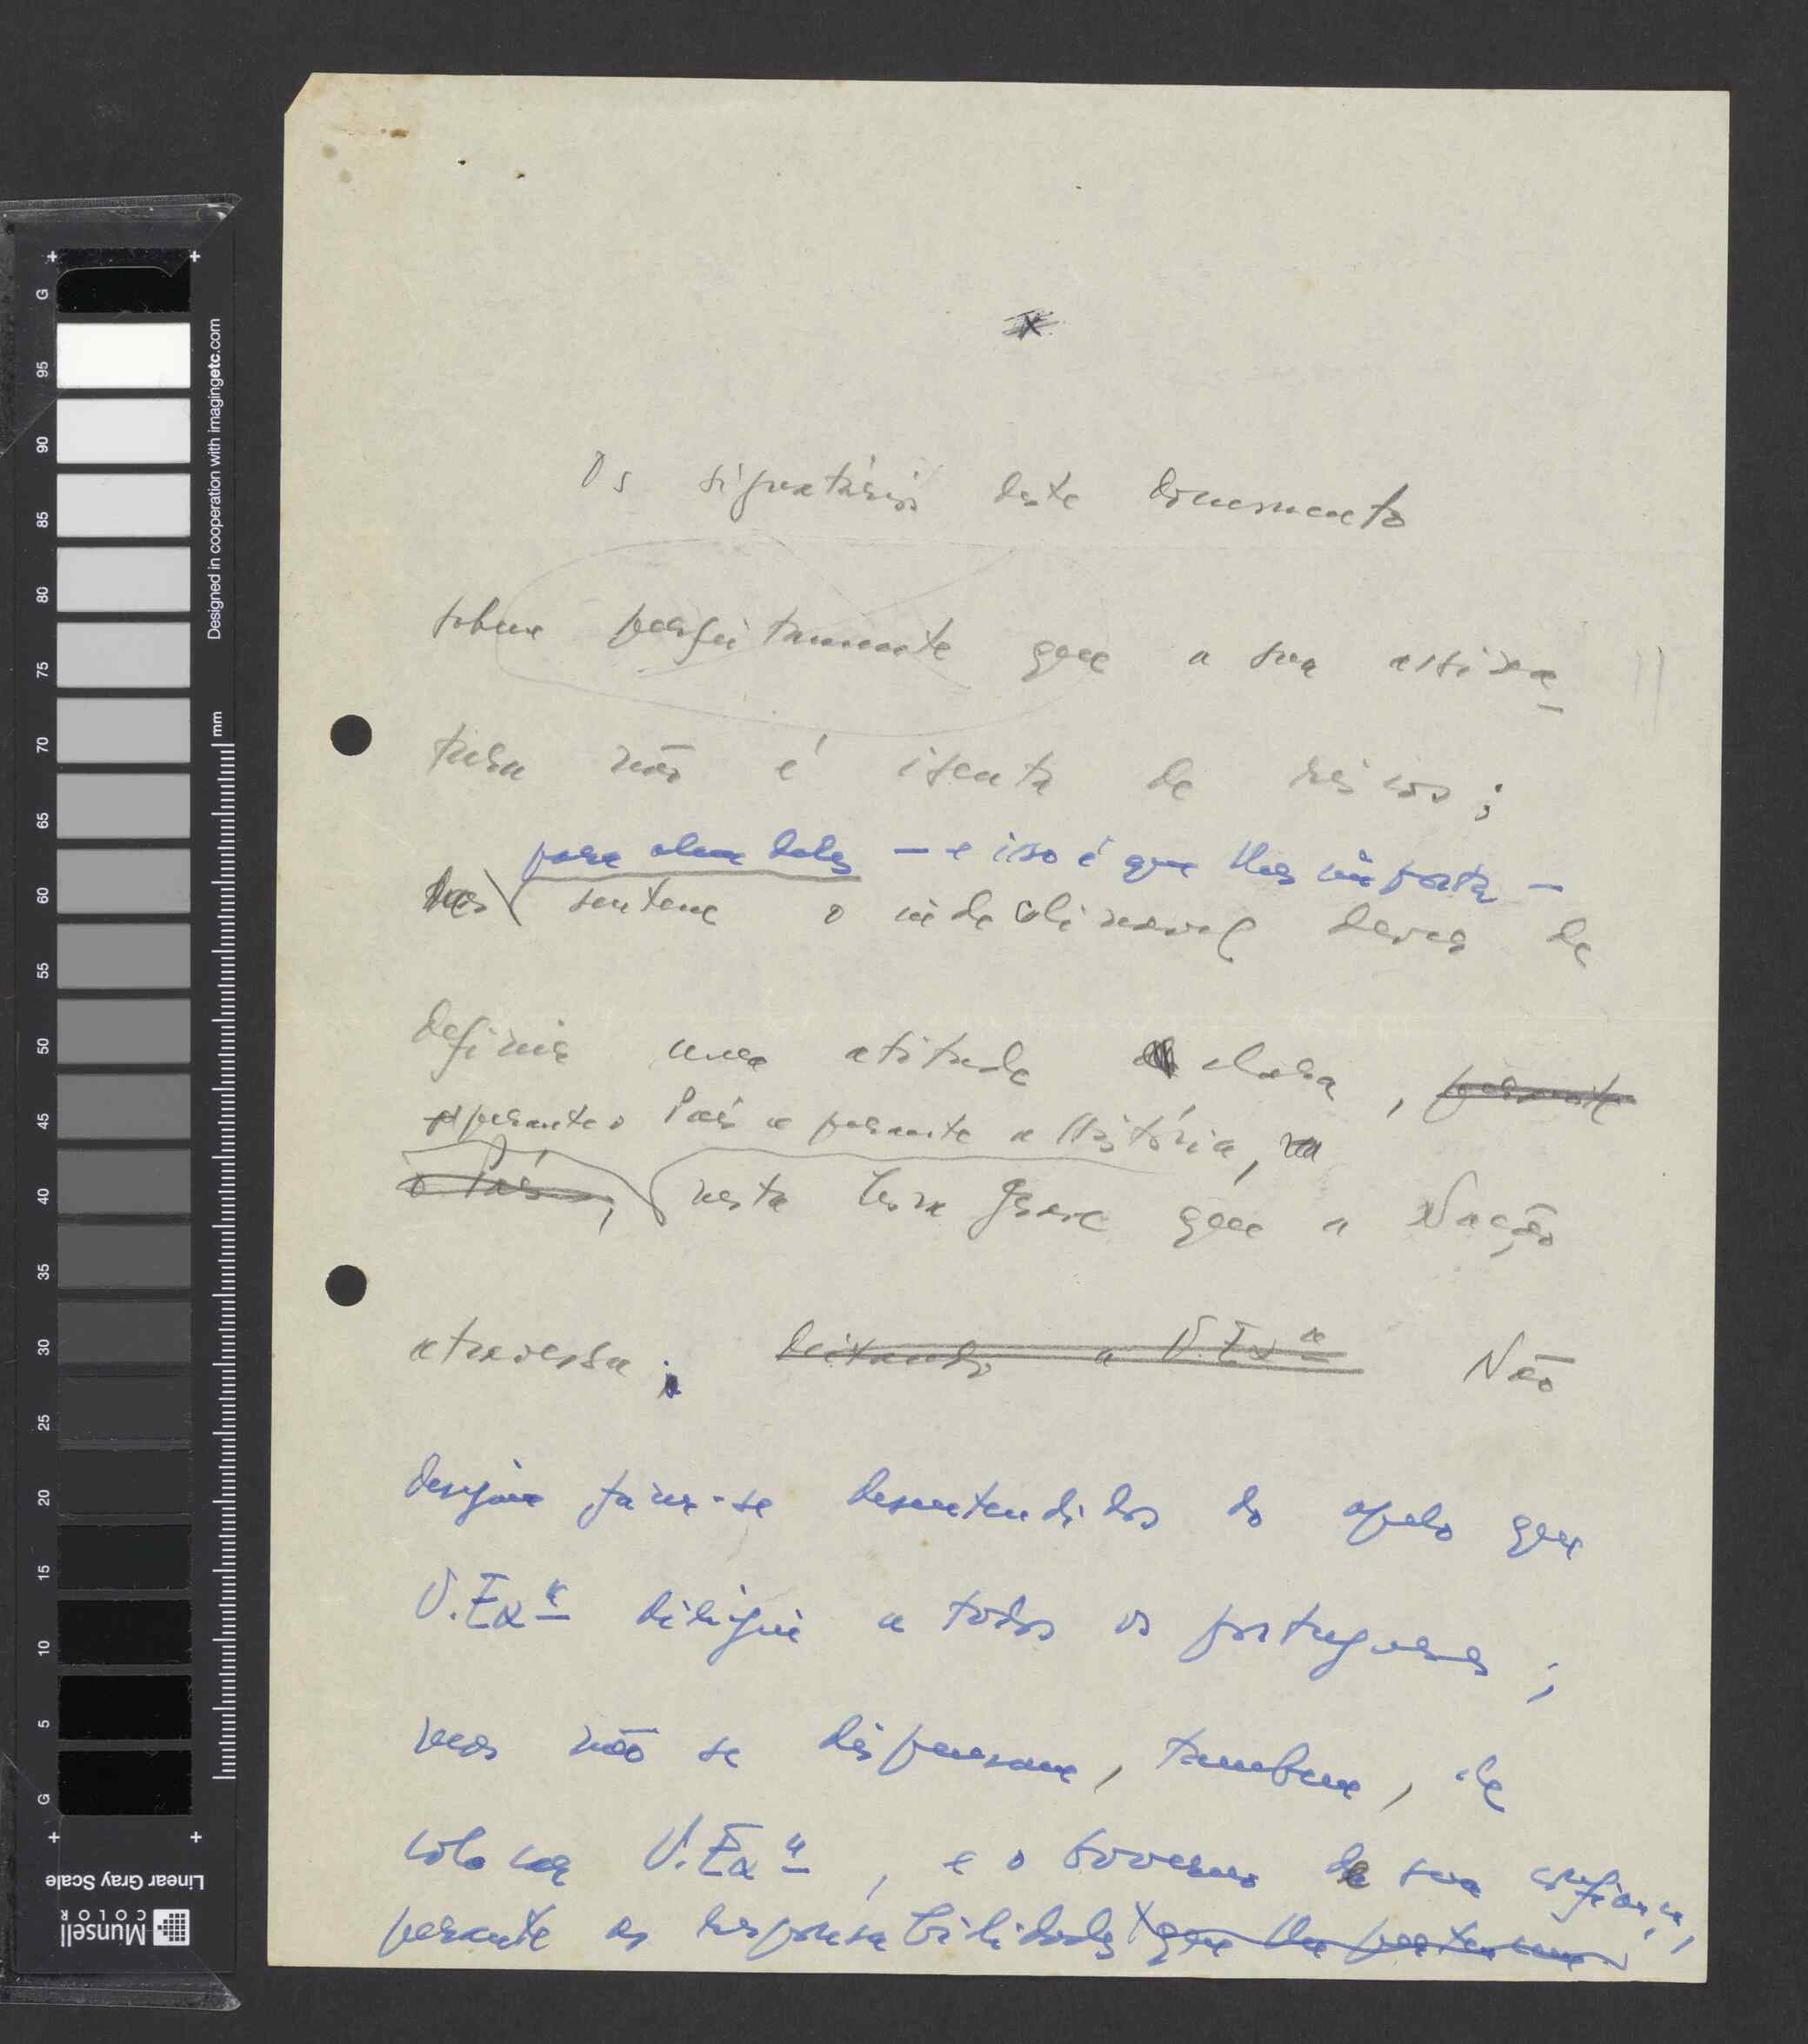 Os signatários deste documento
sabem perfeitamente que a sua assina-
tura não é isenta de riscos;
para além deles — e isso é que lhes importa —
mas sentem o indeclinavel dever de
definir uma atitude clara, perante
perante o País e perante a História,
o País, nesta hora grave que a Nação
atravessa; deixando a V. Exª Não
desejam fazer-se desentendidos do apelo que
V. Exª dirigiu a todos os portugueses;
mas não se dispensam, tambem, de
colocar V. Exª, e o Governo da sua confiança,
perante as responsabilidades que lhe pertencem
G
95
90
85
80
75
70
65
60
55
50
45
40
35
30
25
20
15
10
5
G
mm
Designed in cooperation with imagingetc.com
Linear Gray Scale
Munsell
COLOR